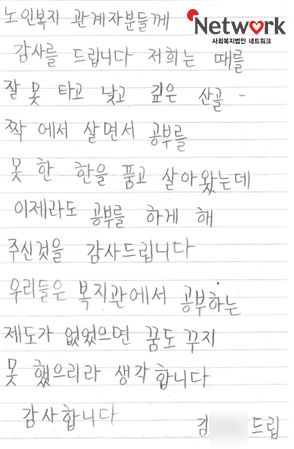 Network
사회복지법인 네트워크
노인복지 관계자분들께
감사를 드립니다 저희는 때를
잘 못 타고 낳고 깊은 산골 -
짝 에서 살면서 공부를
못 한 한을 품고 살아왔는데
이제라도 공부를 하게 해
주신것을 감사드립니다
우리들은 복지관에서 공부하는
제도가 없었으면 꿈도 꾸지
못 했으리라 생각합니다
감사합니다 김 드림